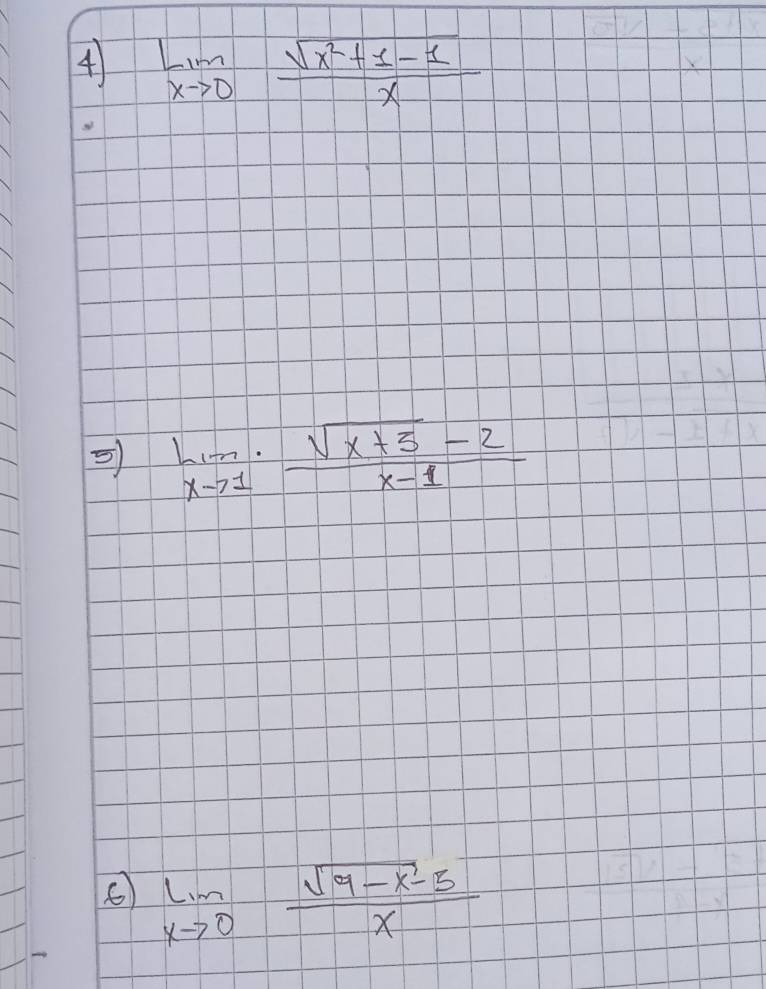 4) Lim x→0 √(x²+1-1) / x
5) Lim. x→1 √(x+3) - 2 / x-1
6) Lim x→0 √(9-x)-3 / x